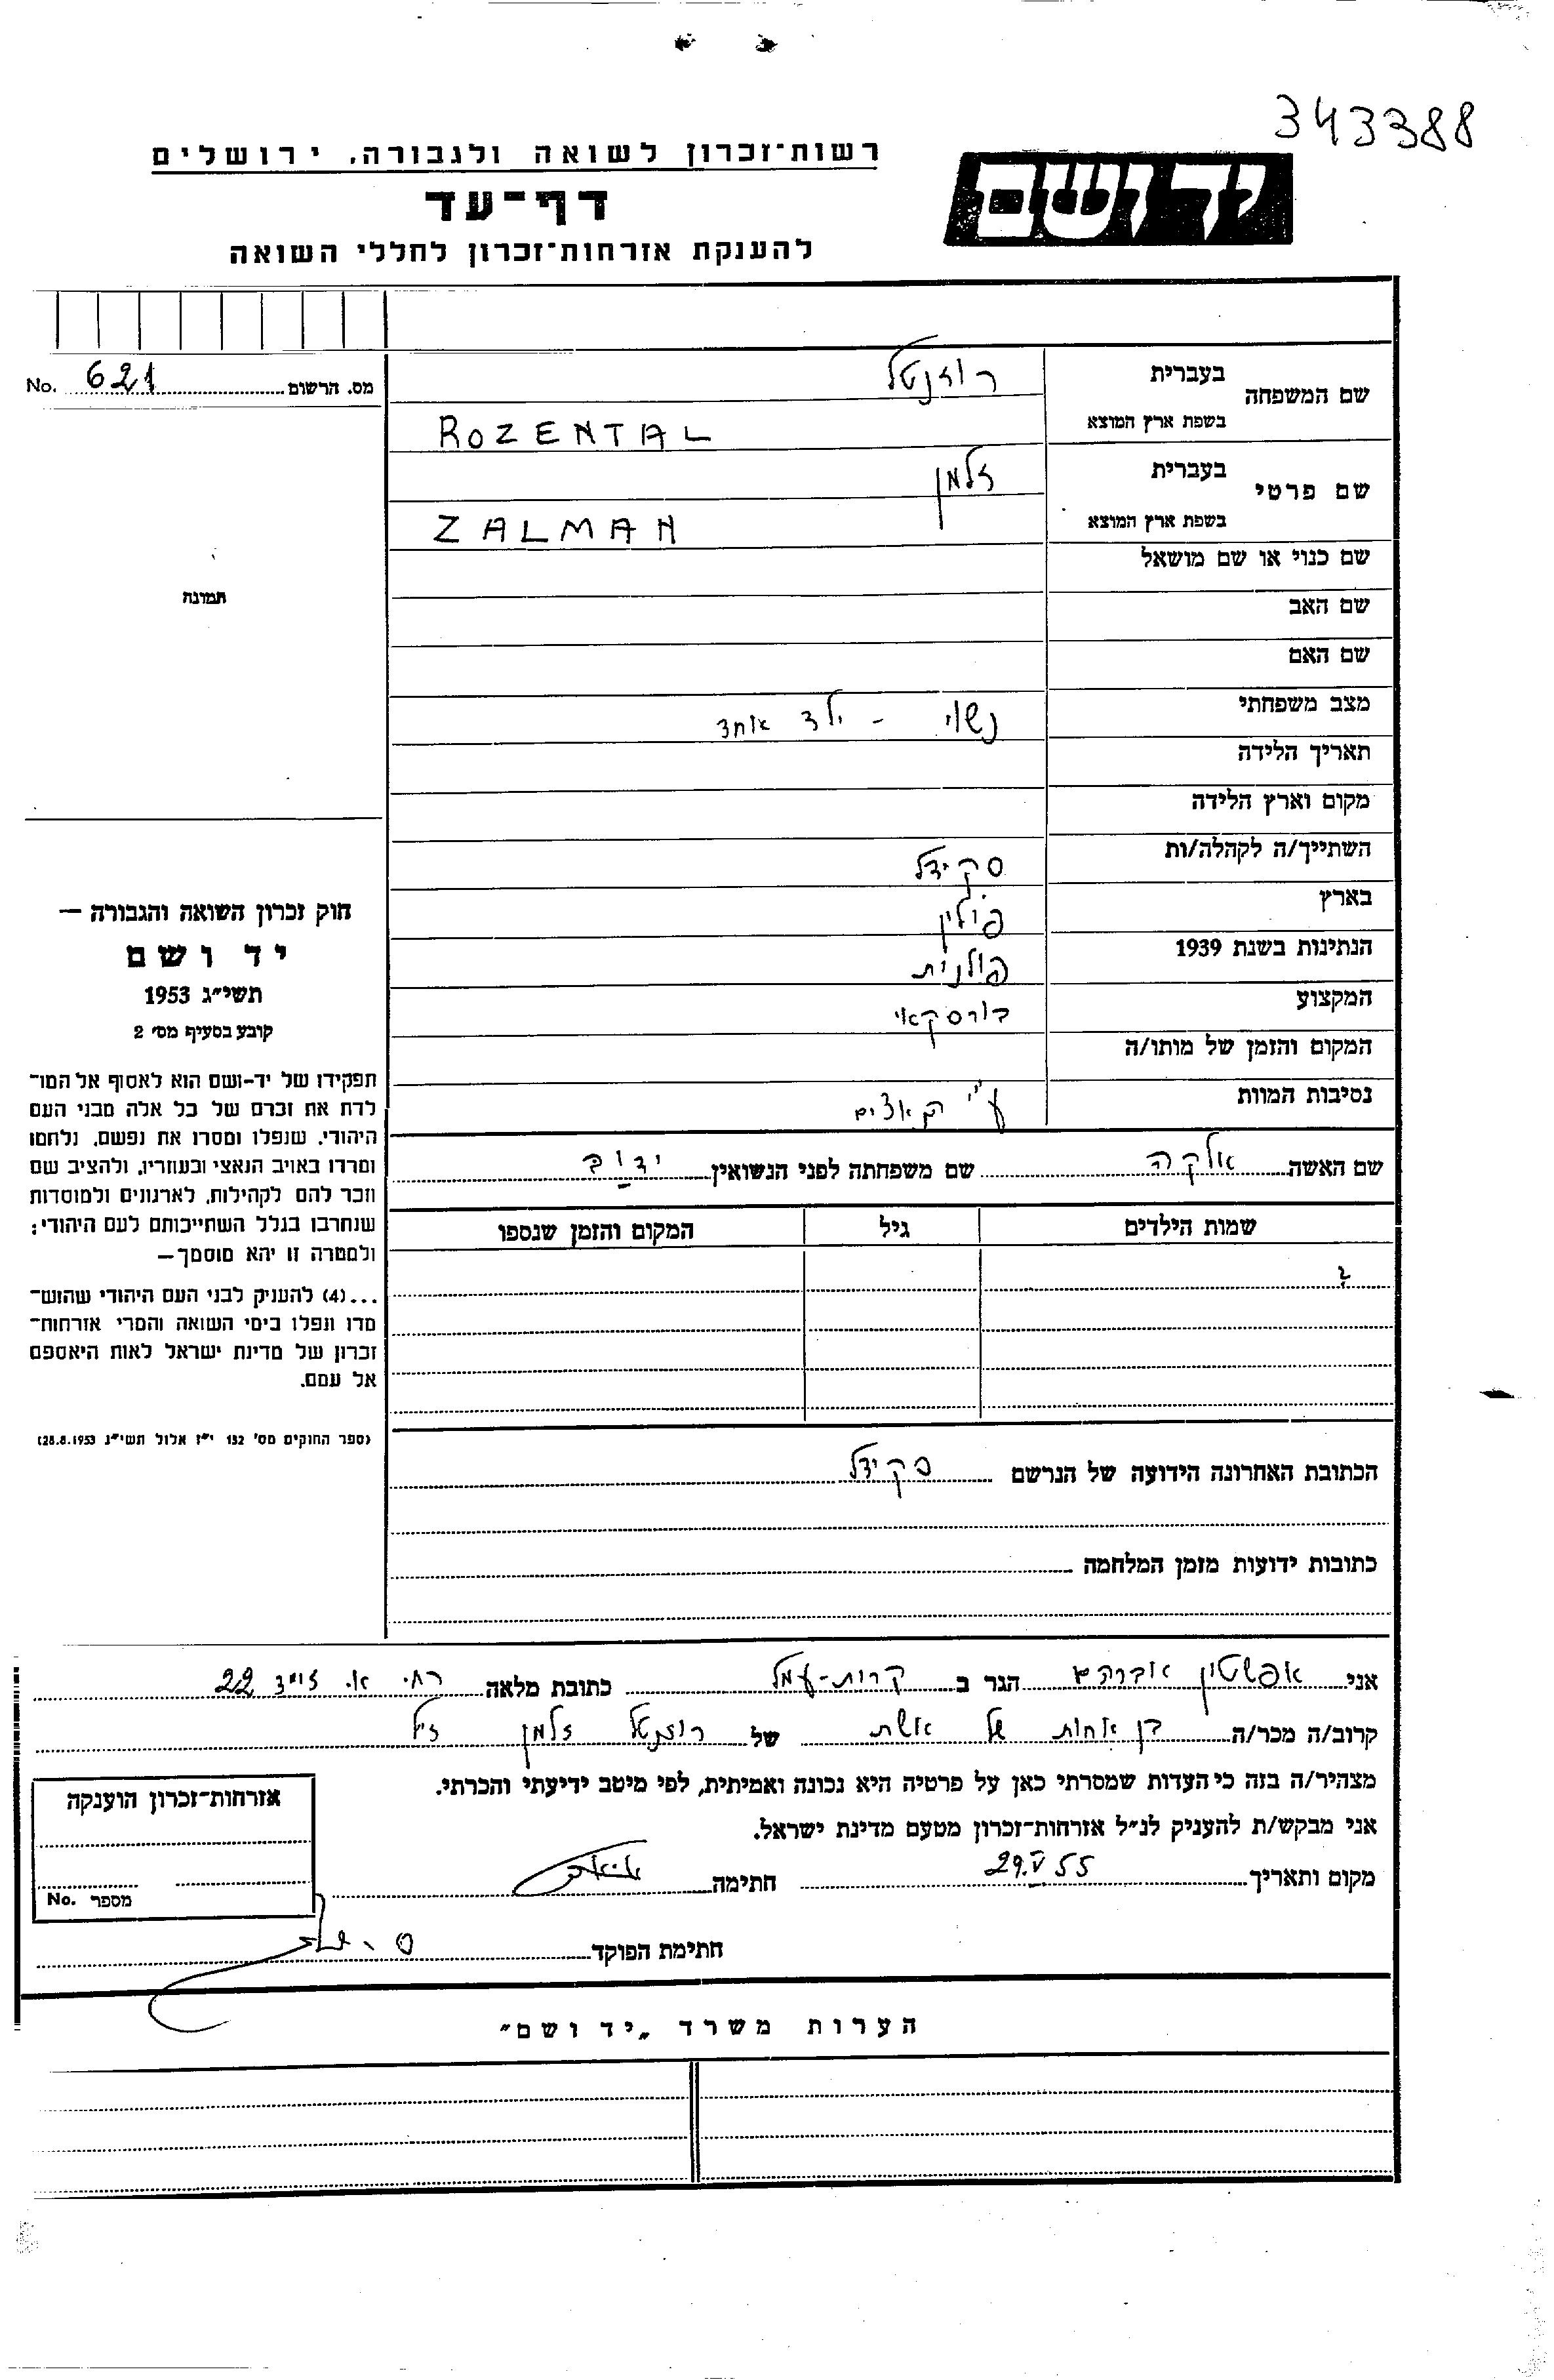 343388
יד ושם
רשות־זכרון לשואה ולגבורה, ירושלים
דף־עד
להענקת אזרחות־זכרון לחללי השואה
מס. הרשום 621 No.
תמונה
חוק זכרון השואה והגבורה —
יד ושם
תשי״ג 1953
קובע בסעיף מס׳ 2
תפקידו של יד-ושם הוא לאסוף אל המו־
לדת את זכרם של כל אלה מבני העם
היהודי, שנפלו ומסרו את נפשם, נלחמו
ומרדו באויב הנאצי ובעוזריו, ולהציב שם
וזכר להם לקהילות, לארגונים ולמוסדות
שנחרבו בגלל השתייכותם לעם היהודי;
ולמטרה זו יהא מוסמך—
...(4) להעניק לבני העם היהודי שהוש־
מדו ונפלו בימי השואה והמרי אזרחות־
זכרון של מדינת ישראל לאות היאספם
אל עמם.
(ספר החוקים מס׳ 132 י״ז אלול תשי״ג 28.8.1953)
שם המשפחה
בעברית רוזנטל
בשפת ארץ המוצא ROZENTAL
שם פרטי
בעברית זלמן
בשפת ארץ המוצא ZALMAN
שם כנוי או שם מושאל
שם האב
שם האם
מצב משפחתי נשוי - ילד אחד
תאריך הלידה
מקום וארץ הלידה
השתייך/ה לקהלה/ות סקידל
בארץ פולין
הנתינות בשנת 1939 פולנית
המקצוע בורסקאי
המקום והזמן של מותו/ה
נסיבות המוות ע״י
שם האשה אלקה שם משפחתה לפני הנשואין
שמות הילדים גיל המקום והזמן שנספו
?
הכתובת האחרונה הידועה של הנרשם סקידל
כתובות ידועות מזמן המלחמה
אני אפשטין אברהם הגר ב קרית-עמל כתובת מלאה רח׳ א. זייד 22
קרוב/ה מכר/ה בן אחות של אשת של רוזנטל זלמן ז״ל
מצהיר/ה בזה כי העדות שמסרתי כאן על פרטיה היא נכונה ואמיתית, לפי מיטב ידיעתי והכרתי.
אני מבקש/ת להעניק לנ״ל אזרחות־זכרון מטעם מדינת ישראל.
מקום ותאריך 29.V 55 חתימה
חתימת הפוקד
אזרחות־זכרון הוענקה
מספר No.
הערות משרד „יד ושם״